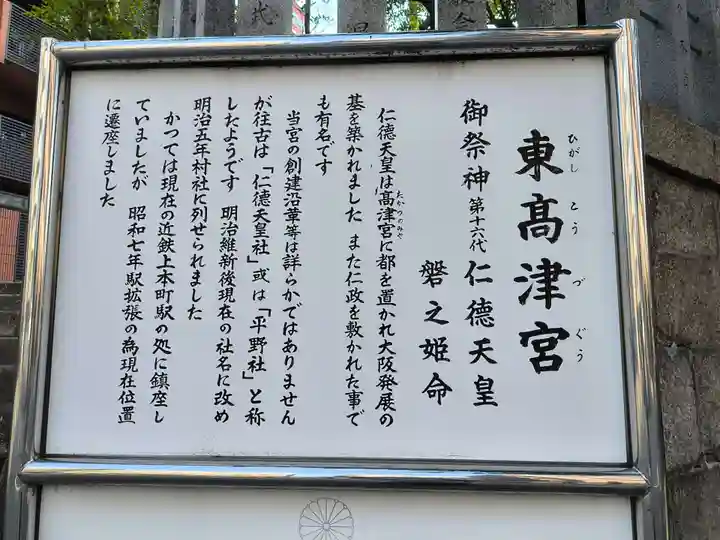 東髙津宮
ひがしとうづぐう
御祭神 第十六代 仁徳天皇
磐之姫命
仁徳天皇は髙津宮に都を置かれ大阪発展の
たかつのみや
基を築かれました また仁政を敷かれた事で
も有名です
当宮の創建沿革等は詳らかではありません
が往古は「仁徳天皇社」或は「平野社」と称
したようです 明治維新後現在の社名に改め
明治五年村社に列せられました
かつては現在の近鉄上本町駅の処に鎮座し
ていましたが 昭和七年駅拡張の為現在位置
に遷座しました